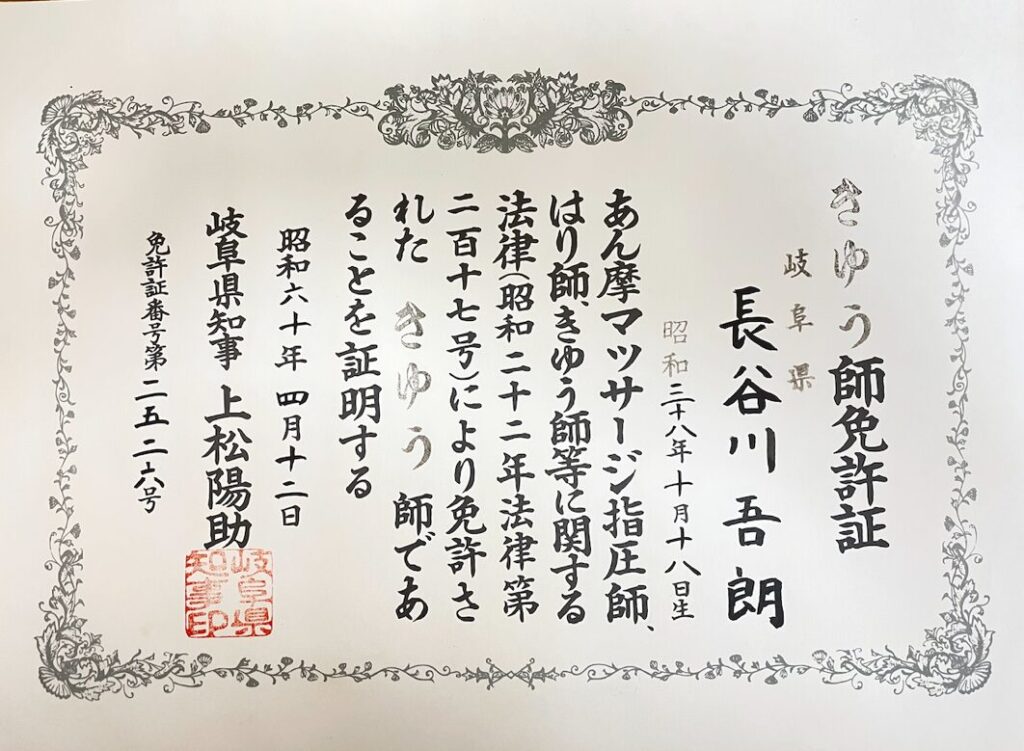 きゆう師免許証
岐阜県
長谷川吾朗
昭和三十八年十月十八日生
あん摩マツサージ指圧師、
はり師、きゆう師等に関する
法律(昭和二十二年法律第
二百十七号)により免許さ
れた きゆう 師であ
ることを証明する
昭和六十年四月十二日
岐阜県知事 上松陽助
岐阜県
知事印
免許証番号第二五二六号